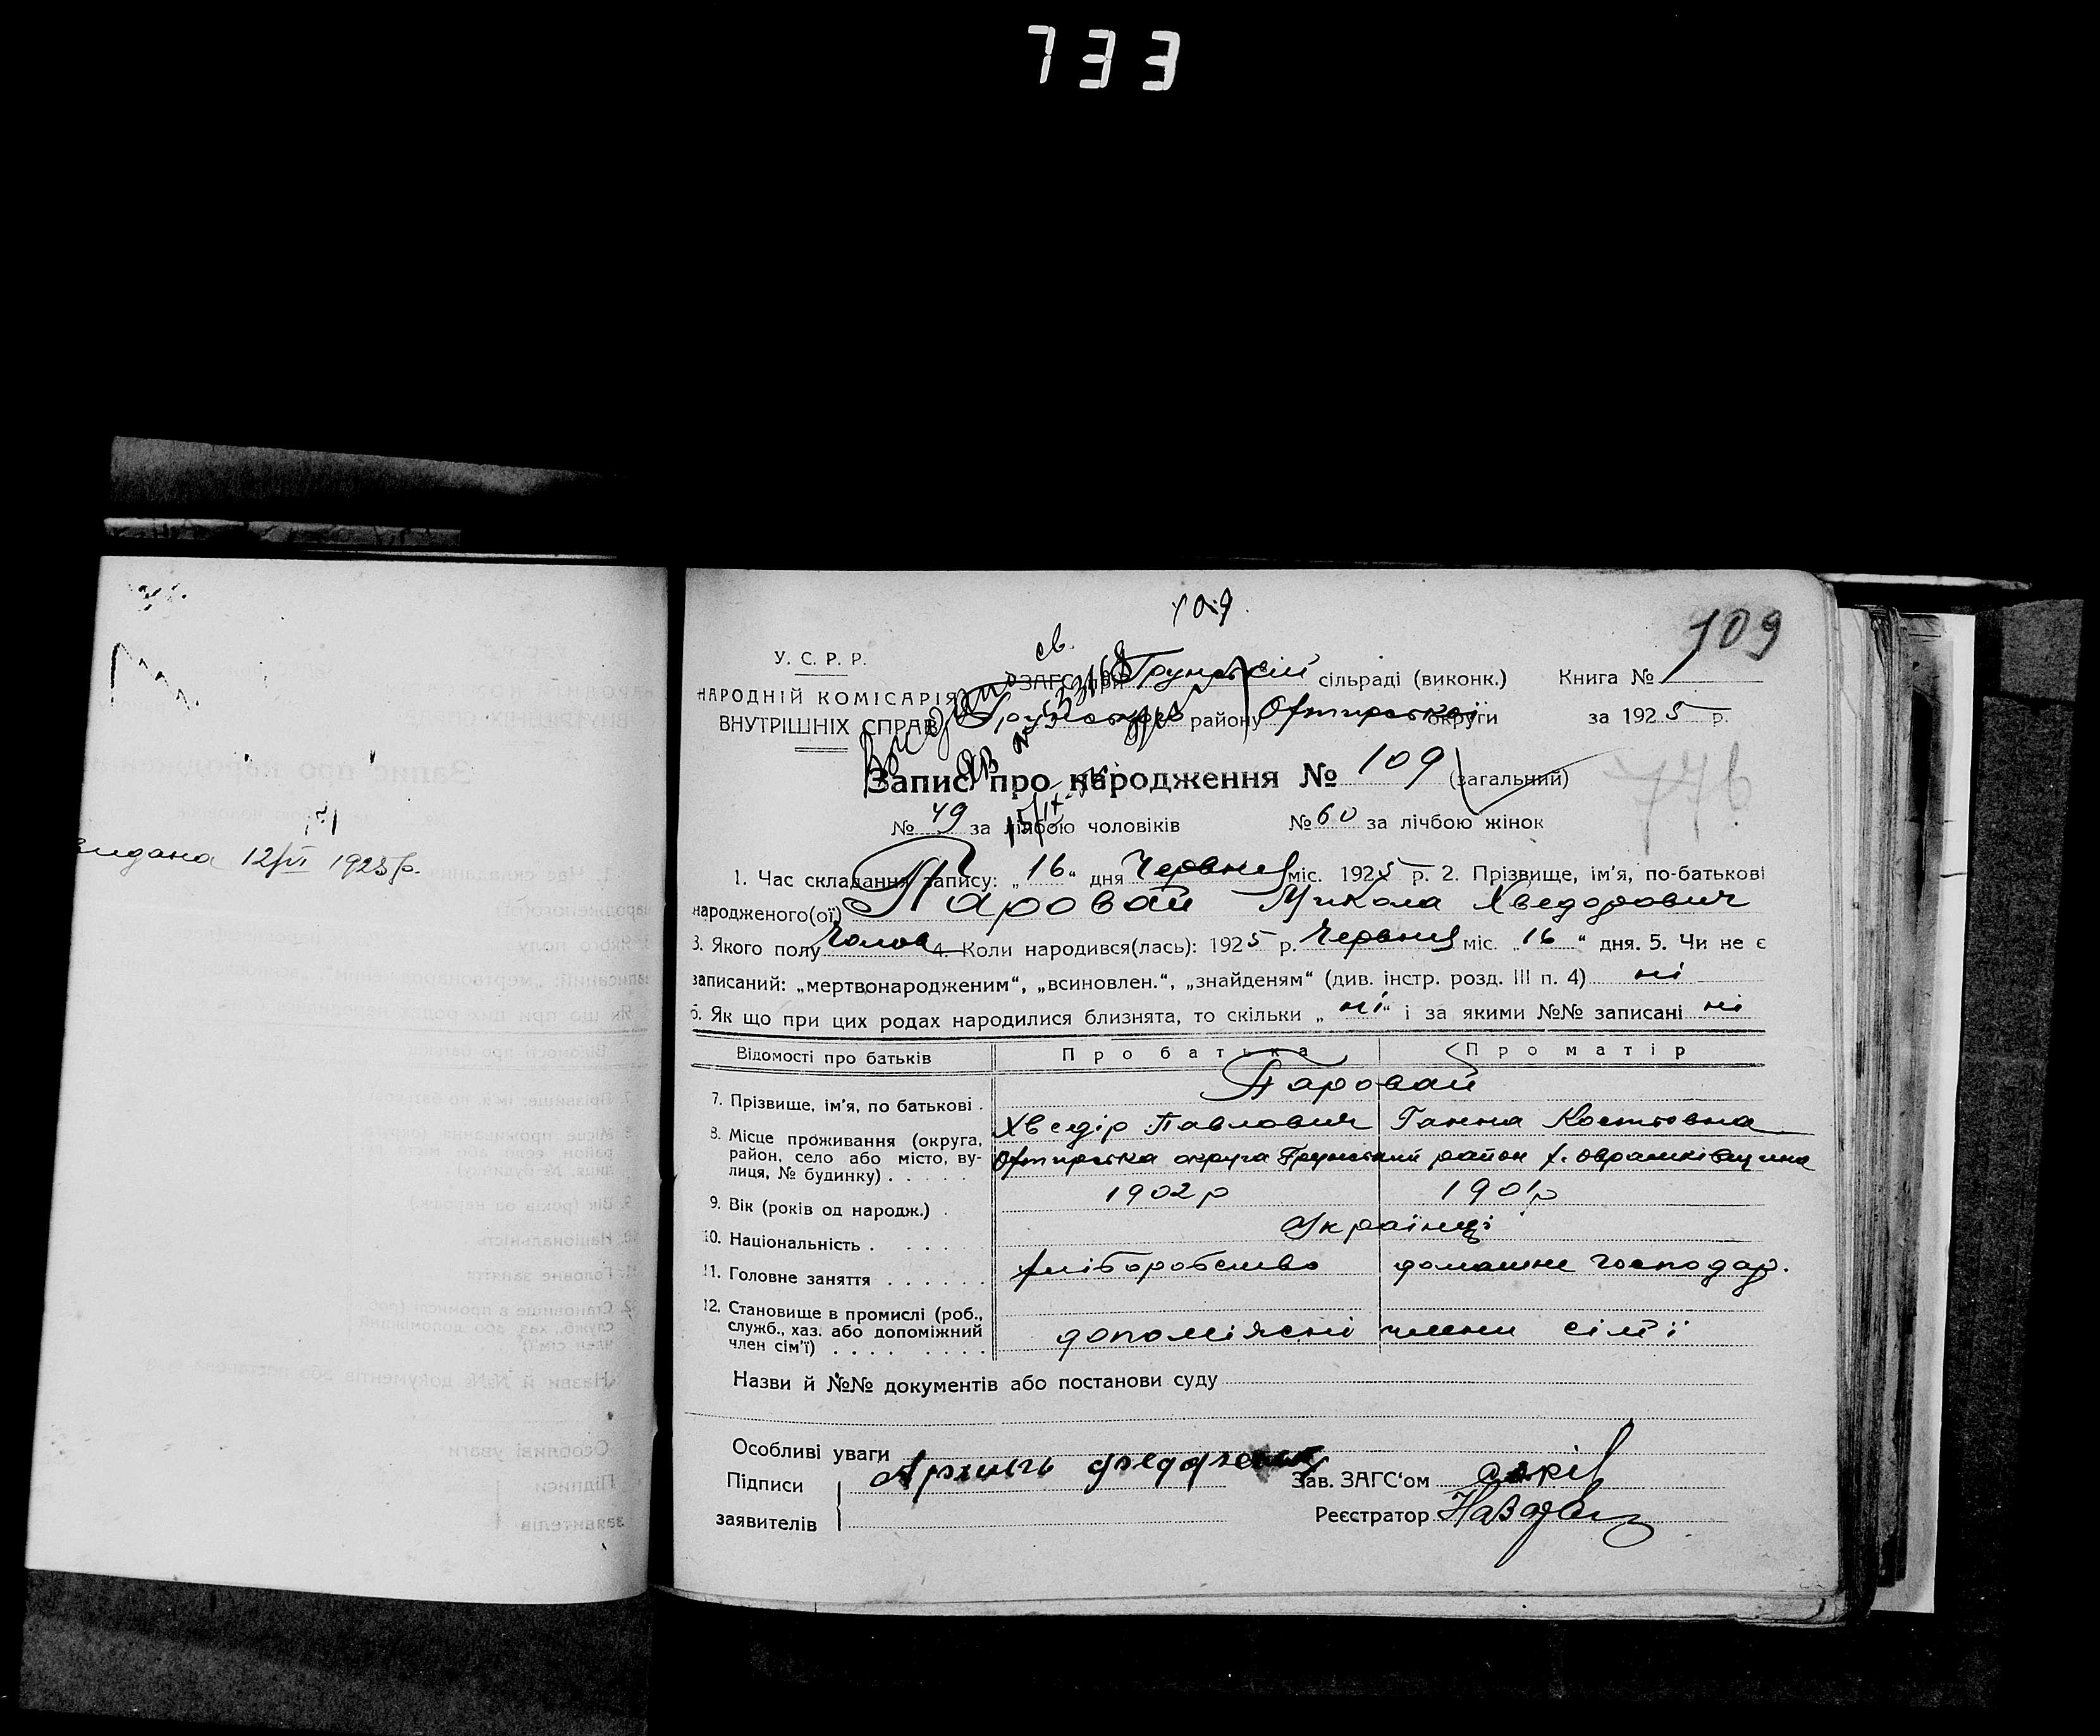 733
109
109
св.
У. С. Р. Р.
НАРОДНІЙ КОМІСАРІЯ
ВНУТРІШНІХ СПРАВ
ЗАГС при Грунській сільраді (виконк.) Книга №
Грунського району Охтирської округи за 1925 р.
Запис про народження № 109 (загальний)
776
№ 49 за лічбою чоловіків № 60 за лічбою жінок
1. Час складання запису: „16“ дня Червня міс. 1925 р. 2. Прізвище, ім'я, по-батькові
народженого(ої) Паровай Микола Хведорович
3. Якого полу Чолов 4. Коли народився(лась): 1925 р. Червня міс. „16“ дня. 5. Чи не є
записаний: „мертвонародженим“, „всиновлен.“, „знайденям“ (див. інстр. розд. III п. 4) ні
6. Як що при цих родах народилися близнята, то скільки „ні“ і за якими №№ записані ні
Відомості про батьків Про батька Про матір
7. Прізвище, ім'я, по батькові . Паровай
Хведір Павлович Ганна Костьовна
8. Місце проживання (округа,
район, село або місто, ву-
лиця, № будинку) . . . . . Охтирська округа Грунський район х. Овраміківщина
9. Вік (років од народж.) . 1902 р 1901 р
10. Національність . . . . . Українці
11. Головне заняття . . . . . . хліборобство домашнє господар.
12. Становище в промислі (роб.,
служб., хаз. або допоміжний
член сім'ї) . . . . . . . . допоміжні члени сім'ї
Назви й №№ документів або постанови суду
Особливі уваги
Підписи
заявителів
Зав. ЗАГС'ом
Реєстратор
видана 12/VI 1925 р.